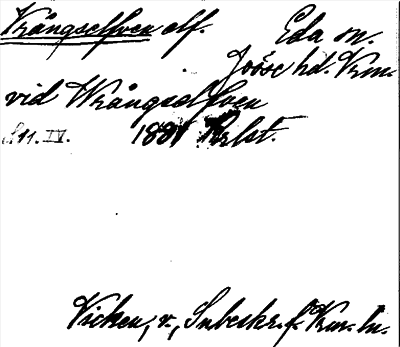 Vrångselfven elf. Eda sn.
Jösse hd. Vrm.
vid Wrångselfven
Sn. IV. 1881 Krlst.
Vicken, v., Inbeskr. f. Vrm. ln.